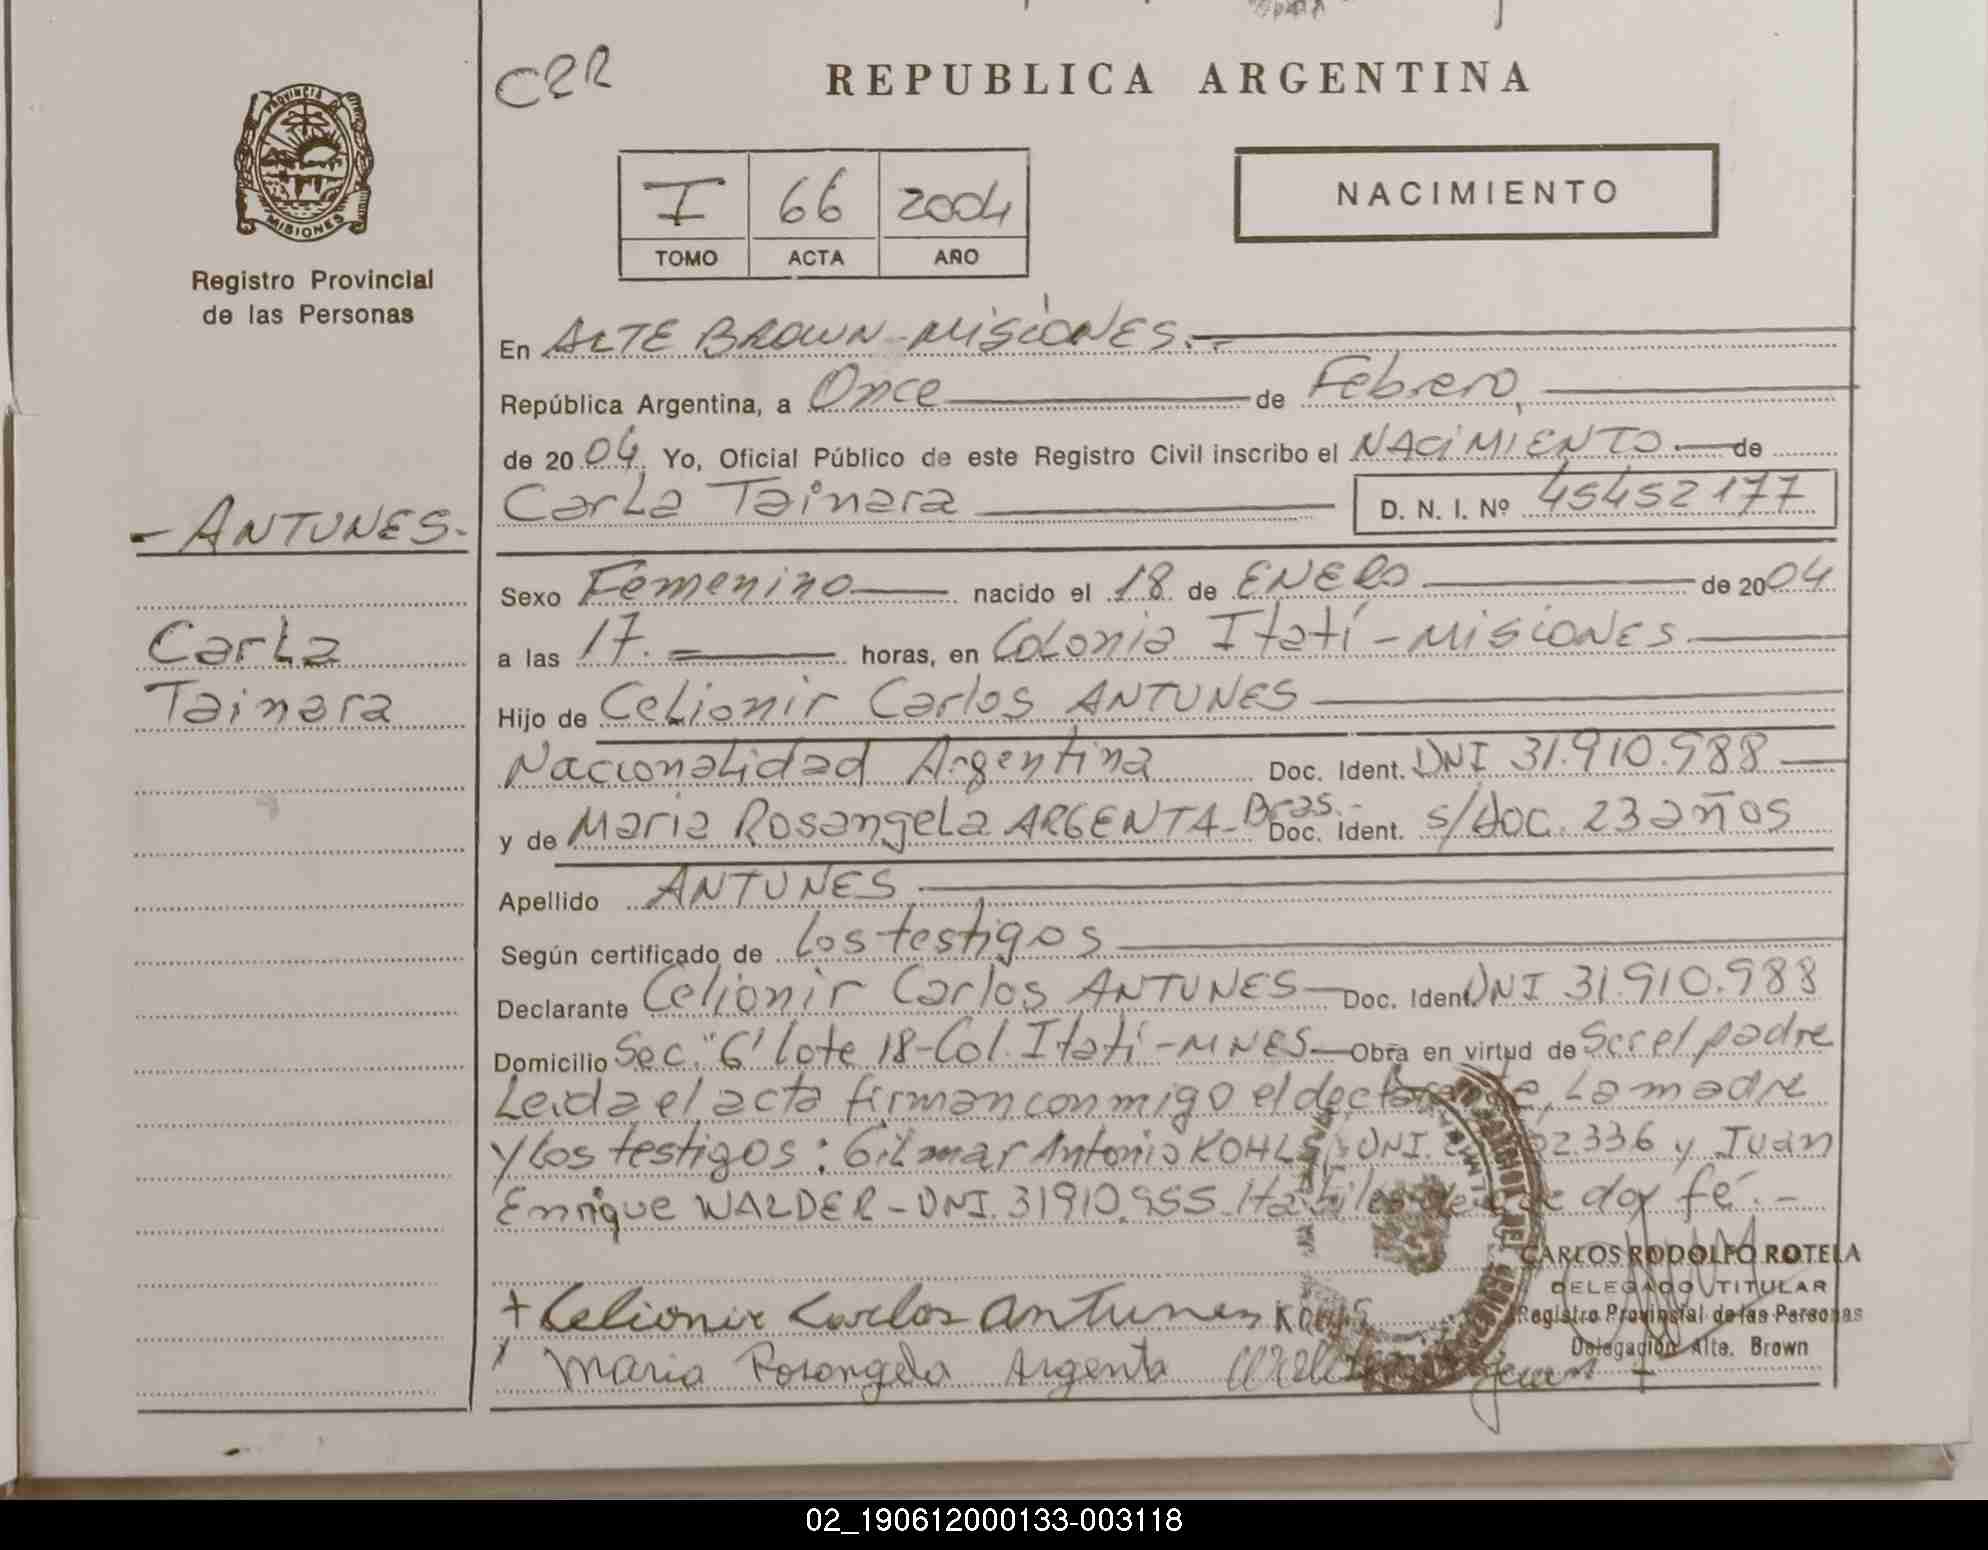 C2R
REPUBLICA ARGENTINA
PROVINCIA DE
MISIONES
Registro Provincial
de las Personas
I 66 2004
TOMO ACTA AÑO
NACIMIENTO
En ALTE BROWN-MISIONES.-
República Argentina, a Once de Febrero,
de 2004. Yo, Oficial Público de este Registro Civil inscribo el NACIMIENTO de
Carla Tainara D. N. I. Nº 45452177
- ANTUNES-
Carla
Tainara
Sexo Femenino nacido el 18 de ENERO de 2004
a las 17. horas, en Colonia Itatí - MISIONES
Hijo de Celionir Carlos ANTUNES
Nacionalidad Argentina Doc. Ident. DNI 31.910.988
y de Maria Rosangela ARGENTA-Bras.- Doc. Ident. s/doc. 23 años
Apellido ANTUNES
Según certificado de los testigos
Declarante Celionir Carlos ANTUNES Doc. Ident. DNI 31.910.988
Domicilio Sec. "G" lote 18-Col. Itatí-MNES Obra en virtud de Ser el padre
Leida el acta firman conmigo el declarante, La madre
y los testigos: Gilmar Antonio KOHLS DNI. 336 y Juan
Enrique WALDER-DNI. 31910.955. Hábiles de que doy fé.-
CARLOS RODOLFO ROTELA
DELEGADO TITULAR
Registro Provincial de las Personas
Delegación Alte. Brown
+ Celionir Carlos Antunes KOHLS
x Maria Rosangela Argenta
02_190612000133-003118